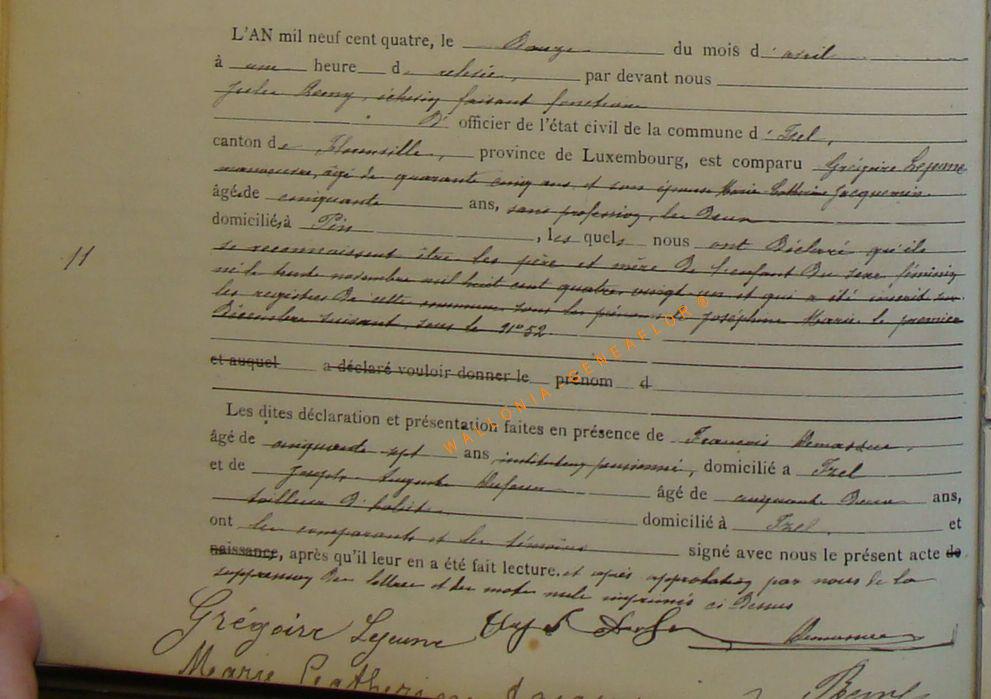 L'AN mil neuf cent quatre, le douze du mois d'avril
à une heure de relevée, par devant nous
Jules Remy, échevin faisant fonctions
d'officier de l'état civil de la commune d'Izel,
canton de Florenville, province de Luxembourg, est comparu Grégoire Lejeune
manoeuvre, âgé de quarante cinq ans et son épouse Marie Catherine Jacquemin
âgée de cinquante ans, sans profession, les deux
domiciliés à Pin, lesquels nous ont déclaré qu'ils
se reconnaissent être les père et mère de l'enfant du sexe féminin
11
né le trente novembre mil huit cent quatre vingt un et qui a été inscrit sur
les registres de cette commune sous les prénoms de Joséphine Marie le premier
Décembre suivant, sous le n° 52
et auquel a déclaré vouloir donner le prénom d
Les dites déclaration et présentation faites en présence de François
âgé de cinquante sept ans, instituteur pensionné, domicilié à Izel
et de Joseph Auguste âgé de cinquante deux ans,
tailleur d'habits domicilié à Izel, et
ont les comparants et les témoins signé avec nous le présent acte de
naissance, après qu'il leur en a été fait lecture. et après approbation par nous de la
suppression des lettres et des mots nuls imprimés ci dessus
Grégoire Lejeune
Marie Catherine
WALLONIA GENEAFLOR ®